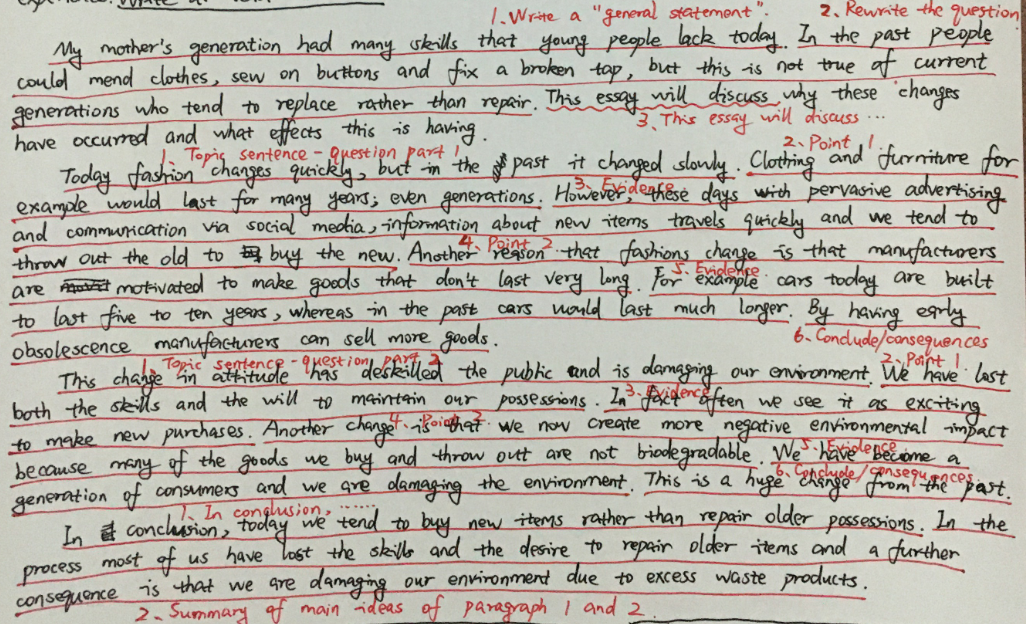 1. Write a "general statement". 2. Rewrite the question
My mother's generation had many skills that young people lack today. In the past people
could mend clothes, sew on buttons and fix a broken tap, but this is not true of current
generations who tend to replace rather than repair. This essay will discuss why these changes
3. This essay will discuss ...
have occurred and what effects this is having.
1. Topic sentence - question part 1 2. Point 1.
Today fashion changes quickly, but in the past it changed slowly. Clothing and furniture for
3. Evidence
example would last for many years; even generations. However, these days with pervasive advertising
and communication via social media, information about new items travels quickly and we tend to
4. Point 2
throw out the old to buy the new. Another reason that fashions change is that manufacturers
5. Evidence
are motivated to make goods that don't last very long. For example cars today are built
to last five to ten years, whereas in the past cars would last much longer. By having early
6. Conclude/consequences
obsolescence manufacturers can sell more goods.
1. Topic sentence - question part 2 2. Point 1.
This change in attitude has deskilled the public and is damaging our environment. We have lost
3. Evidence
both the skills and the will to maintain our possessions. In fact often we see it as exciting
4. Point 2
to make new purchases. Another change is that we now create more negative environmental impact
5. Evidence
because many of the goods we buy and throw out are not biodegradable. We have become a
6. Conclude/consequences
generation of consumers and we are damaging the environment. This is a huge change from the past.
1. In conclusion, ......
In conclusion, today we tend to buy new items rather than repair older possessions. In the
process most of us have lost the skills and the desire to repair older items and a further
consequence is that we are damaging our environment due to excess waste products.
2. Summary of main ideas of paragraph 1 and 2.